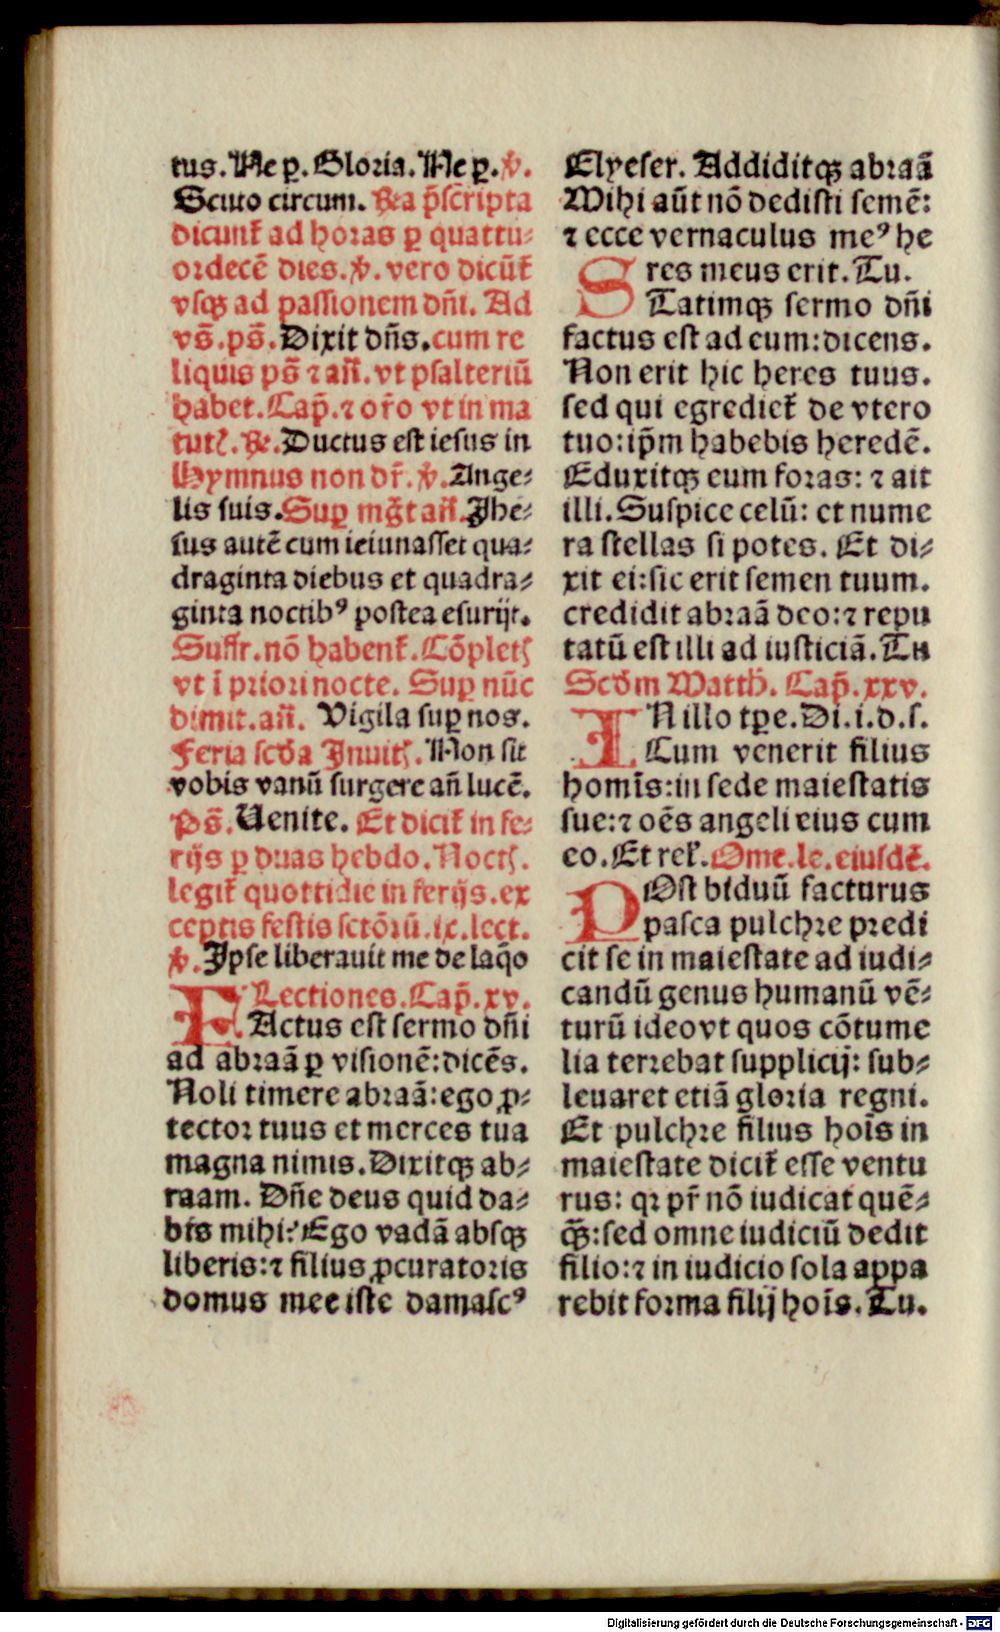 tus. Ne ꝑ. Gloria. Ne ꝑ. ℣.
Scuto circum. R̃a p̄sc̄ripta
dicunt̃ ad horas ꝑ quattu⸗
ordecē dies. ℣. vero dicūt̃
vsqꝫ ad passionem dn̄i. Ad
vs̄. ps̄. Dixit dn̄s. cum re
liquis ps̄ ⁊ añ. vt psalteriū
habet. Cap̄. ⁊ or̄o vt in ma
tut̃. ℟. Ductus est iesus in
Hymnus non dr̄. ℣. Ange⸗
lis suis. Suꝑ mg̃t añ. Jhe⸗
sus autē cum ieiunasset qua⸗
draginta diebus et quadra⸗
ginta noctibꝰ postea esurijt.
Suffr. nō habent̃. Cōplet̃
vt ī priori nocte. Suꝑ nūc
dimit. añ. Vigila suꝑ nos.
Feria scd̄a Inuit̃. Non sit
vobis vanū surgere añ lucē.
Ps̄. Uenite. Et dicit̃ in fe⸗
rijs ꝑ duas hebdo. Noct̃.
legit̃ quottidie in ferijs. ex
ceptis festis sctōrū. ix. lect.
℣. Ipse liberauit me de laq̄o
Lectiones. Cap̄. xv.
FActus est sermo dn̄i
ad abraā ꝑ visionē: dicēs.
Noli timere abraā: ego ꝓ⸗
tector tuus et merces tua
magna nimis. Dixitqꝫ ab⸗
raam. Dn̄e deus quid da⸗
bis mihi? Ego vadā absqꝫ
liberis: ⁊ filius ꝓcuratoris
domus mee iste damascꝰ
Elyeser. Addiditqꝫ abraā
Mihi aūt nō dedisti semē:
⁊ ecce vernaculus meꝰ he
res meus erit. Tu.
STatimqꝫ sermo dn̄i
factus est ad eum: dicens.
Non erit hic heres tuus.
sed qui egrediet̃ de vtero
tuo: ip̄m habebis heredē.
Eduxitqꝫ eum foras: ⁊ ait
illi. Suspice celū: et nume
ra stellas si potes. Et di⸗
xit ei: sic erit semen tuum.
credidit abraā deo: ⁊ repu
tatū est illi ad iusticiā. Tu
Scd̄m Matth̄. Cap̄. xxv.
IN illo tꝑe. Di. i. d. s.
Cum venerit filius
homīs: in sede maiestatis
sue: ⁊ oēs angeli eius cum
eo. Et rel̃. Ome. le. eiusdē.
POst biduū facturus
pasca pulchre predi
cit se in maiestate ad iudi⸗
candū genus humanū vē⸗
turū ideo vt quos cōtume
lia terrebat supplicij: sub⸗
leuaret etiā gloria regni.
Et pulchre filius hoīs in
maiestate dicit̃ esse ventu
rus: qꝛ pr̄ nō iudicat quē⸗
q̄ꝫ: sed omne iudiciū dedit
filio: ⁊ in iudicio sola appa
rebit forma filij hoīs. Tu.
Digitalisierung gefördert durch die Deutsche Forschungsgemeinschaft - DFG